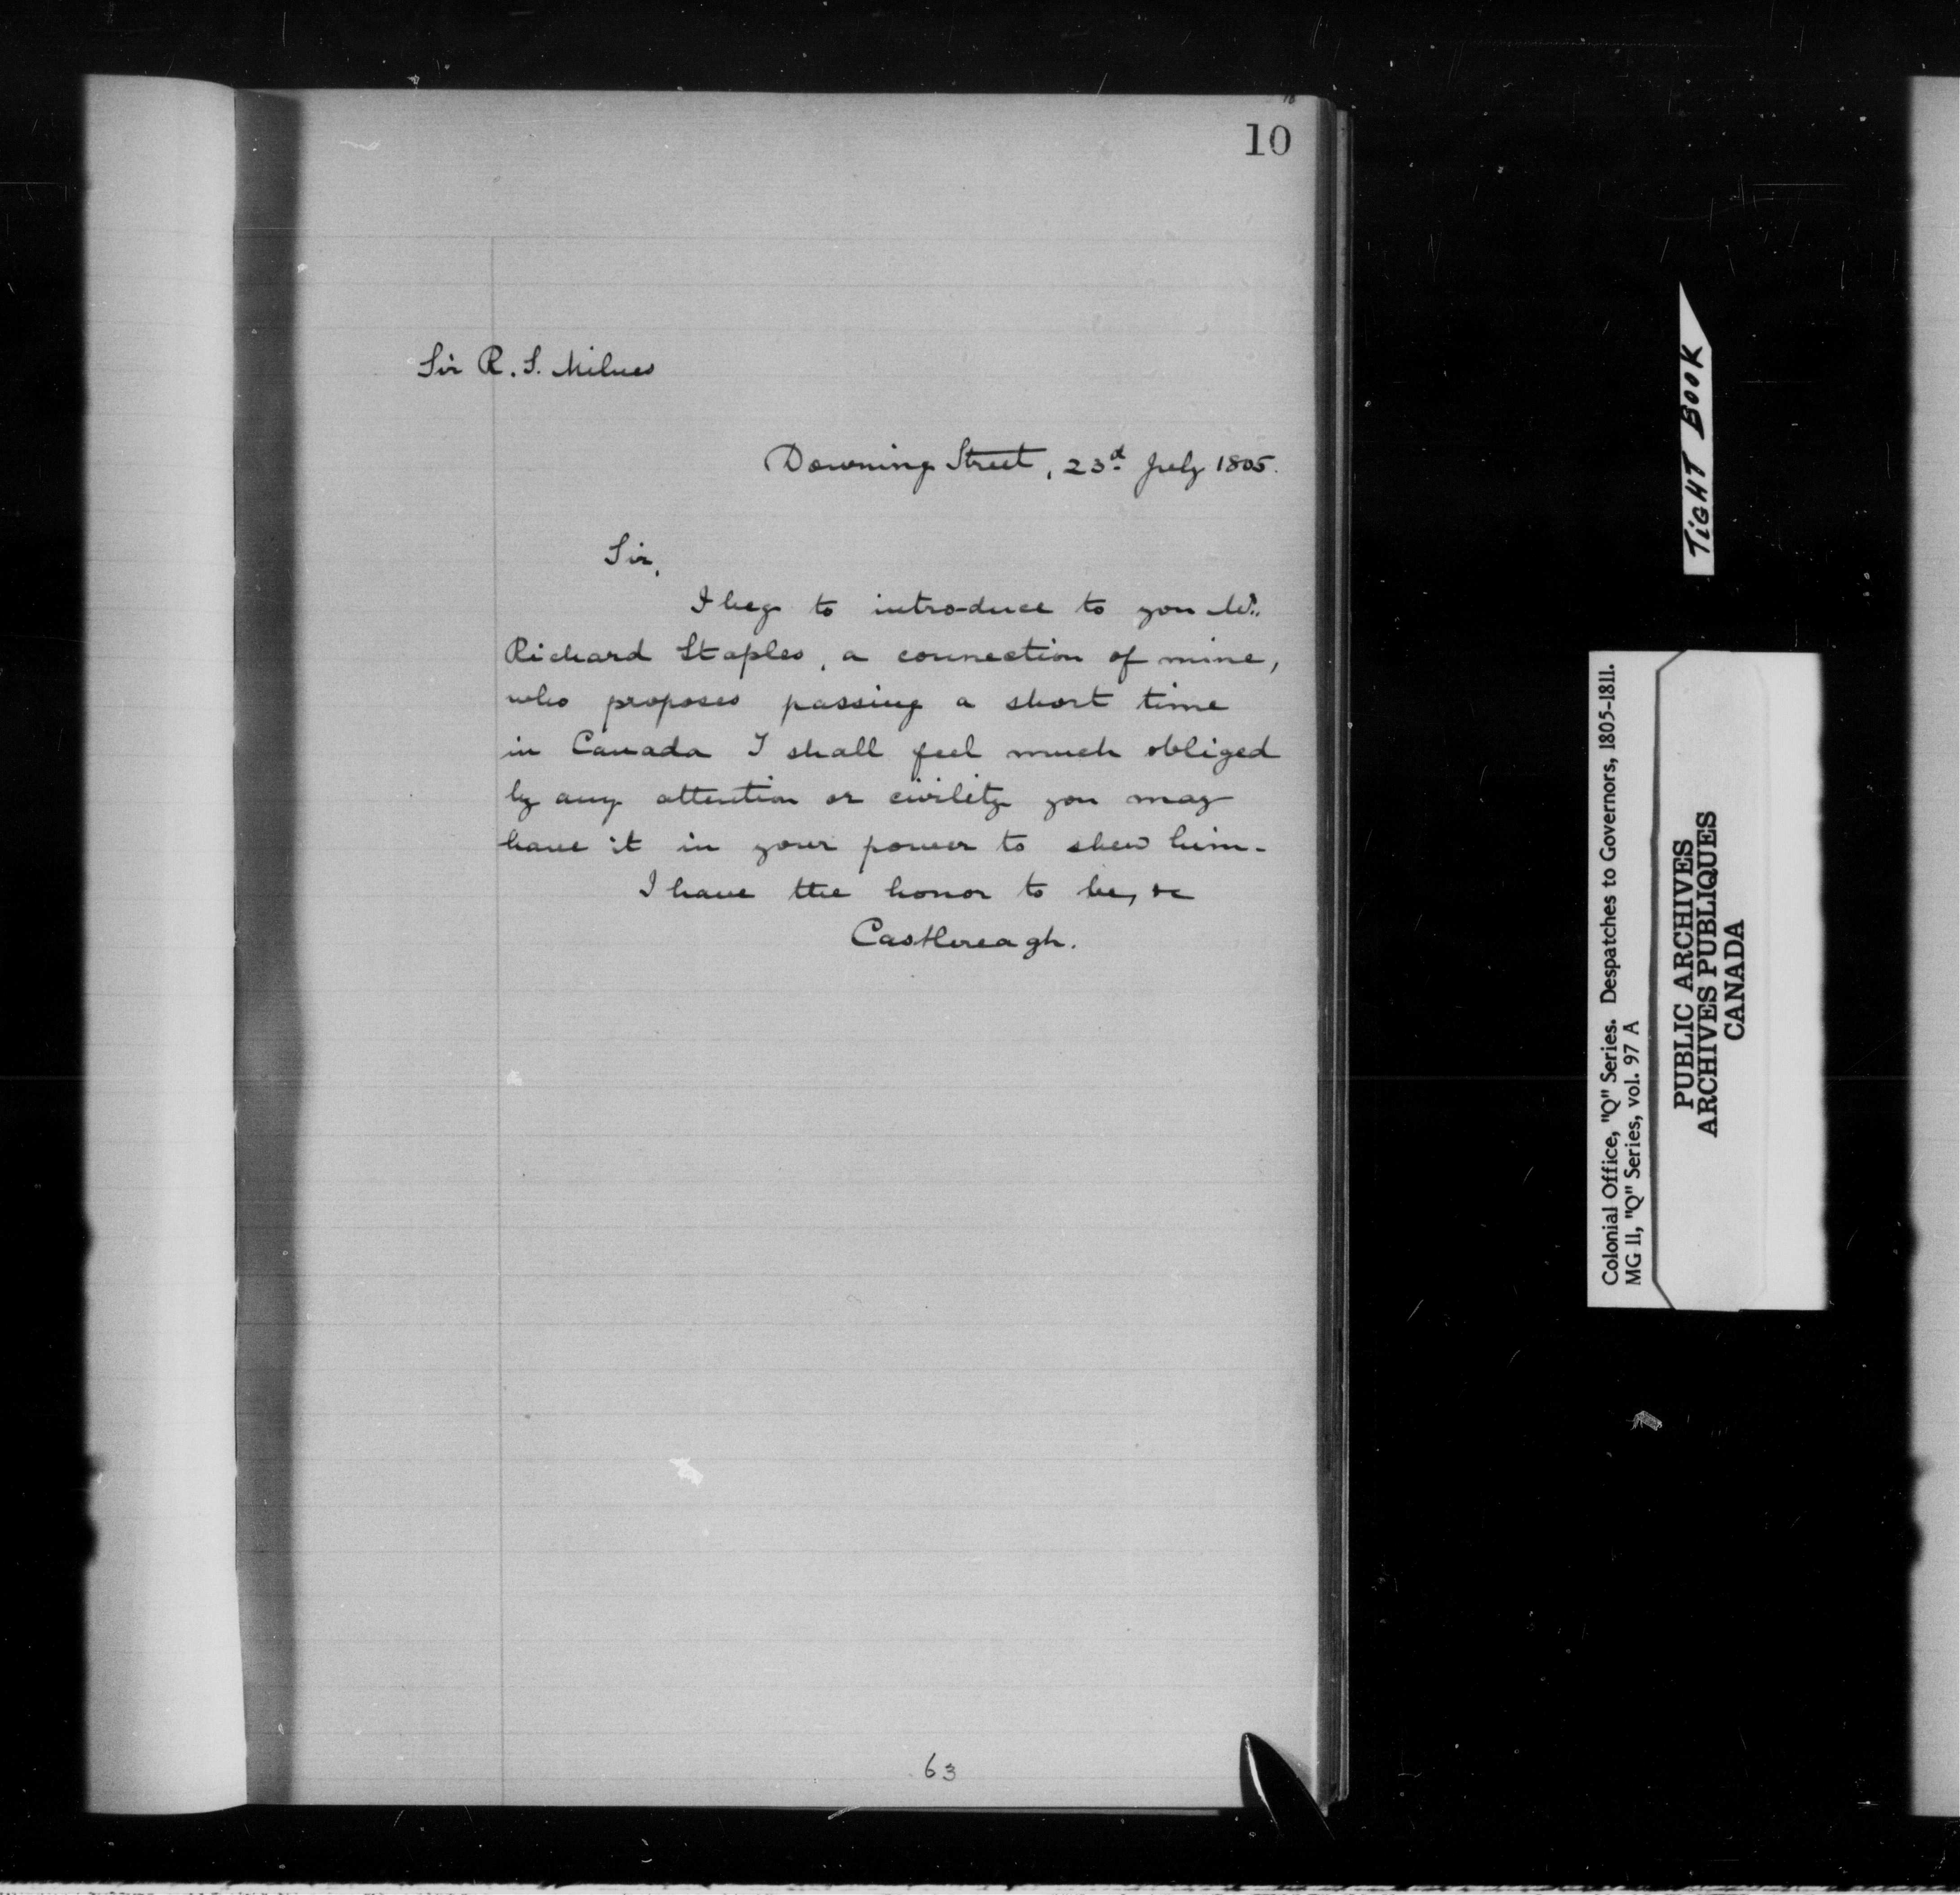 10
Sir R. S. Milnes
Downing Street, 23d July 1805.
Sir,
I beg to introduce to you Mr.
Richard Staples, a connection of mine,
who proposes passing a short time
in Canada I shall feel much obliged
by any attention or civility you may
have it in your power to shew him.
I have the honor to be, &c
Castlereagh.
63
TiGHT BOOK
Colonial Office, "Q" Series. Despatches to Governors, 1805-1811.
MG 11, "Q" Series, vol. 97 A
PUBLIC ARCHIVES
ARCHIVES PUBLIQUES
CANADA